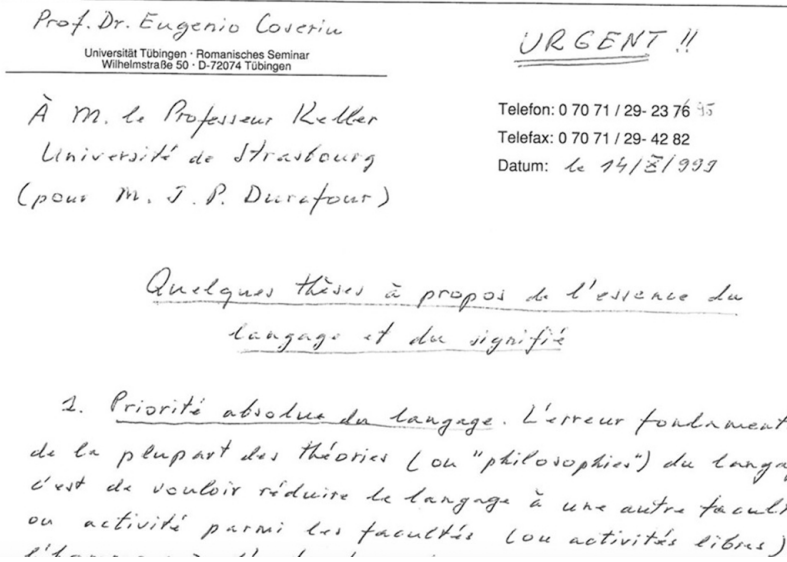 Prof. Dr. Eugenio Coseriu
Universität Tübingen · Romanisches Seminar
Wilhelmstraße 50 · D-72074 Tübingen
URGENT !!
À M. le Professeur Keller
Université de Strasbourg
(pour M. J. P. Durafour)
Telefon: 0 70 71 / 29- 23 76
Telefax: 0 70 71 / 29- 42 82
Datum: le 14/X/999
Quelques thèses à propos de l'essence du
langage et du signifié
1. Priorité absolue du langage. L'erreur fondament
de la plupart des théories (ou "philosophies") du langa
c'est de vouloir réduire le langage à une autre facult
ou activité parmi les facultés (ou activités libres)